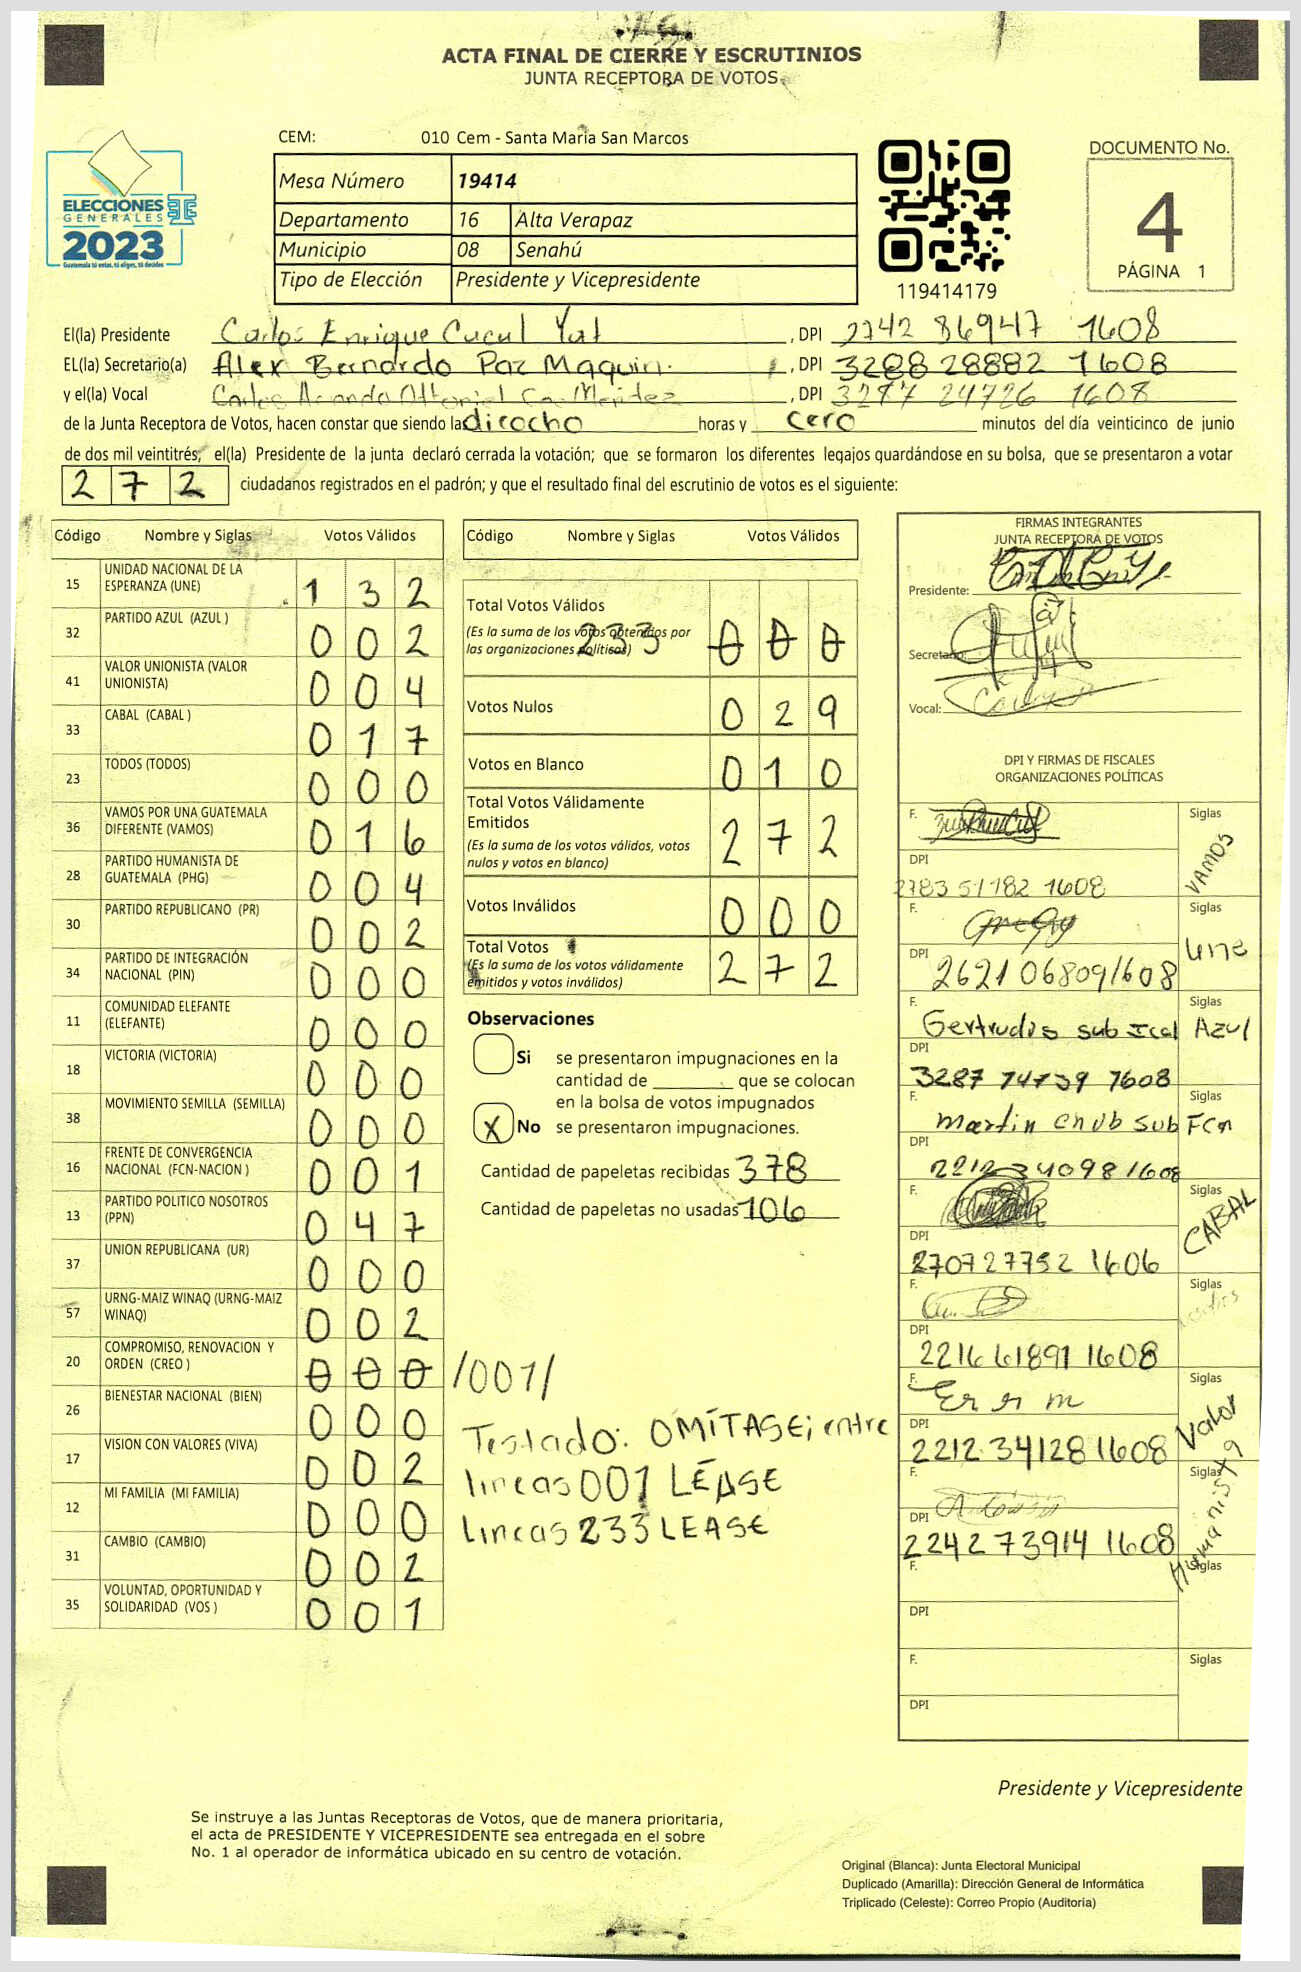 ACTA FINAL DE CIERRE Y ESCRUTINIOS
JUNTA RECEPTORA DE VOTOS
ELECCIONES
GENERALES
2023
Guatemala tú votas, tú eliges, tú decides
CEM: 010 Cem - Santa Maria San Marcos
Mesa Número 19414
Departamento 16 Alta Verapaz
Municipio 08 Senahú
Tipo de Elección Presidente y Vicepresidente
119414179
DOCUMENTO No.
4
PÁGINA 1
El(la) Presidente Carlos Enrique Cucul Yat, DPI 2742 86947 1608
EL(la) Secretario(a) Alex Bernardo Paz Maquin, DPI 3288 28882 1608
y el(la) Vocal Carlos, DPI 3287 24726 1608
de la Junta Receptora de Votos, hacen constar que siendo la diocho horas y cero minutos del día veinticinco de junio
de dos mil veintitrés, el(la) Presidente de la junta declaró cerrada la votación; que se formaron los diferentes legajos quardándose en su bolsa, que se presentaron a votar
272 ciudadanos registrados en el padrón; y que el resultado final del escrutinio de votos es el siguiente:
Código Nombre y Siglas Votos Válidos
15 UNIDAD NACIONAL DE LA ESPERANZA (UNE) 132
32 PARTIDO AZUL (AZUL ) 002
41 VALOR UNIONISTA (VALOR UNIONISTA) 004
33 CABAL (CABAL ) 017
23 TODOS (TODOS) 000
36 VAMOS POR UNA GUATEMALA DIFERENTE (VAMOS) 016
28 PARTIDO HUMANISTA DE GUATEMALA (PHG) 004
30 PARTIDO REPUBLICANO (PR) 002
34 PARTIDO DE INTEGRACIÓN NACIONAL (PIN) 000
11 COMUNIDAD ELEFANTE (ELEFANTE) 000
18 VICTORIA (VICTORIA) 000
38 MOVIMIENTO SEMILLA (SEMILLA) 000
16 FRENTE DE CONVERGENCIA NACIONAL (FCN-NACION ) 001
13 PARTIDO POLITICO NOSOTROS (PPN) 047
37 UNION REPUBLICANA (UR) 000
57 URNG-MAIZ WINAQ (URNG-MAIZ WINAQ) 002
20 COMPROMISO, RENOVACION Y ORDEN (CREO ) 000 /001/
26 BIENESTAR NACIONAL (BIEN) 000
17 VISION CON VALORES (VIVA) 002
12 MI FAMILIA (MI FAMILIA) 000
31 CAMBIO (CAMBIO) 002
35 VOLUNTAD, OPORTUNIDAD Y SOLIDARIDAD (VOS ) 001
Código Nombre y Siglas Votos Válidos
Total Votos Válidos
(Es la suma de los votos obtenidos por
las organizaciones políticas) 233 000
Votos Nulos 029
Votos en Blanco 010
Total Votos Válidamente
Emitidos
(Es la suma de los votos válidos, votos
nulos y votos en blanco) 272
Votos Inválidos 000
Total Votos
(Es la suma de los votos válidamente
emitidos y votos inválidos) 272
Observaciones
Si se presentaron impugnaciones en la
cantidad de ________ que se colocan
en la bolsa de votos impugnados
X No se presentaron impugnaciones.
Cantidad de papeletas recibidas 378
Cantidad de papeletas no usadas 106
Testado: OMÍTASE; entre
lineas 001 LÉASE
lineas 233 LEASE
FIRMAS INTEGRANTES
JUNTA RECEPTORA DE VOTOS
Presidente:
Secretario:
Vocal:
DPI Y FIRMAS DE FISCALES
ORGANIZACIONES POLÍTICAS
F. Siglas VAMOS
DPI 2783 51182 1608
F. Siglas une
DPI 2621 06809 1608
F. Gertrudis sub Ical Siglas Azul
DPI 3287 74739 1608
F. Martin Chub sub Siglas Fcn
DPI 2212 34098 1608
F. Siglas CABAL
DPI 2707 27752 1606
F. Siglas
DPI 2216 61891 1608
F. Siglas Valor
DPI 2212 34128 1608
F. Siglas Humanista
DPI 2242 73914 1608
F. Siglas
DPI
F. Siglas
DPI
Presidente y Vicepresidente
Se instruye a las Juntas Receptoras de Votos, que de manera prioritaria,
el acta de PRESIDENTE Y VICEPRESIDENTE sea entregada en el sobre
No. 1 al operador de informática ubicado en su centro de votación.
Original (Blanca): Junta Electoral Municipal
Duplicado (Amarilla): Dirección General de Informática
Triplicado (Celeste): Correo Propio (Auditoría)